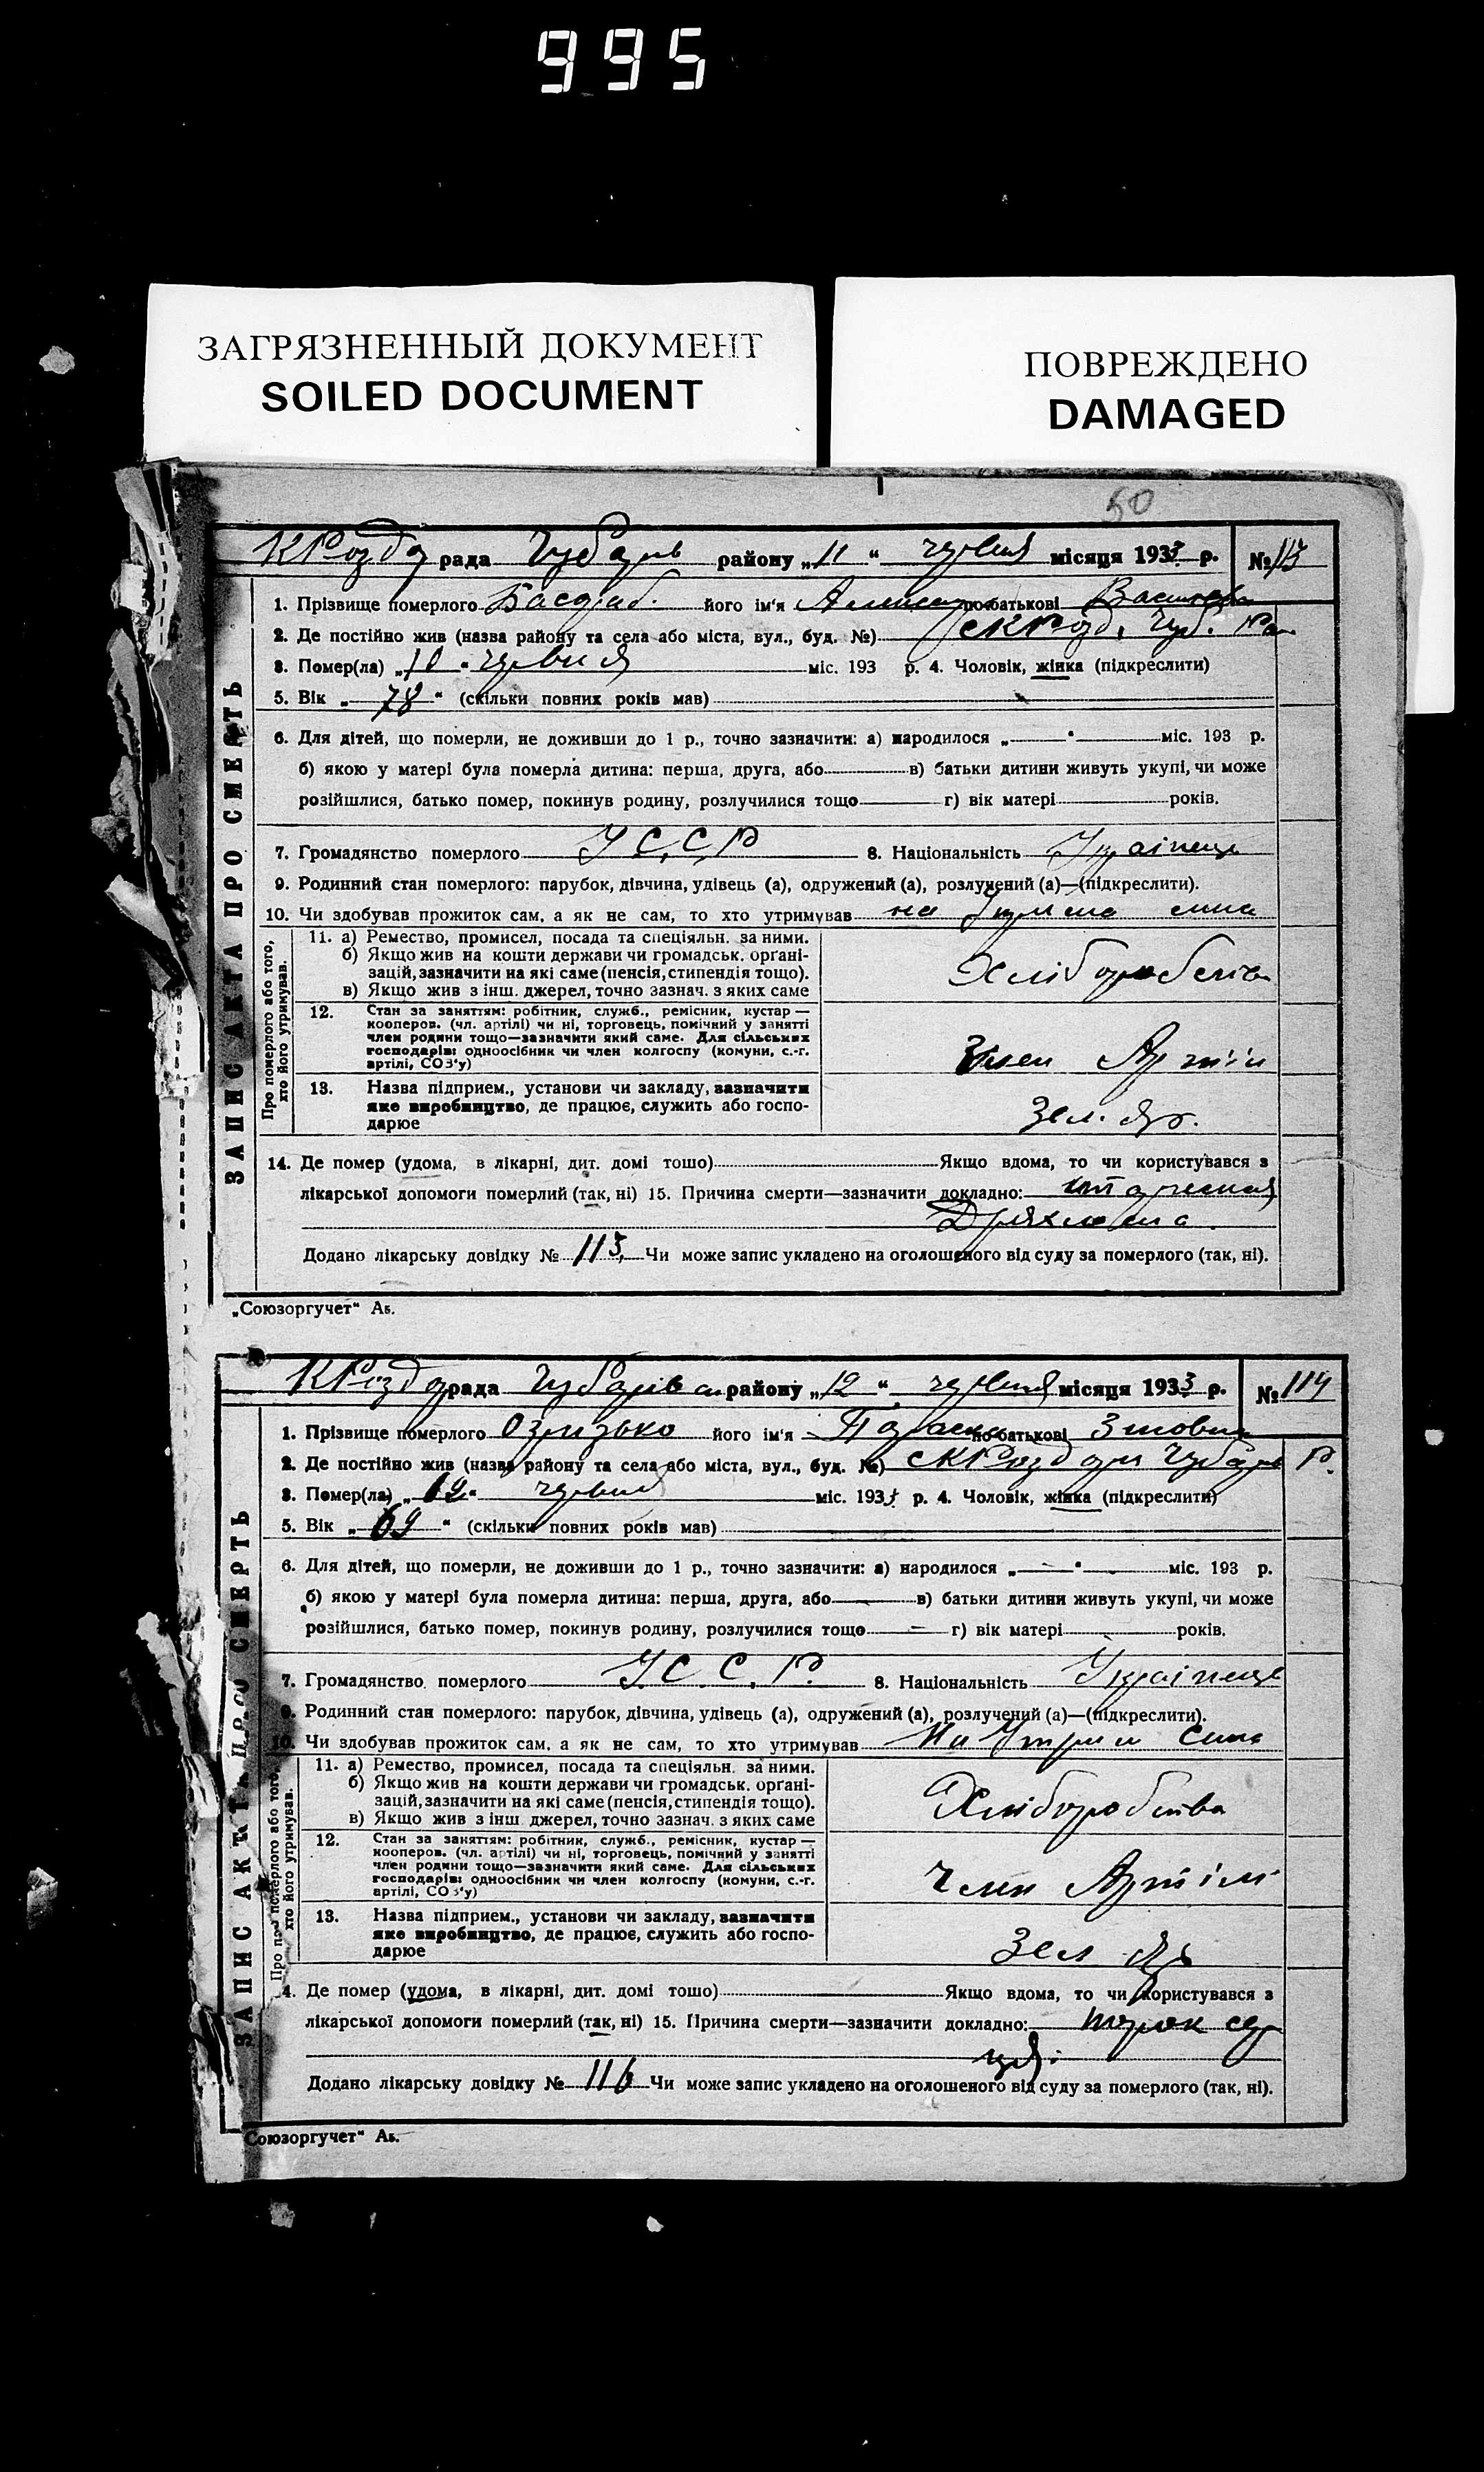 995
ЗАГРЯЗНЕННЫЙ ДОКУМЕНТ
SOILED DOCUMENT
ПОВРЕЖДЕНО
DAMAGED
50
ЗАПИС АКТА ПРО СМЕРТЬ
рада Чубарів району „11“ червня місяця 1933 р. №
1. Прізвище померлого його ім'я по батькові
2. Де постійно жив (назва району та села або міста, вул., буд. №)
3. Помер(ла) „10“ червня міс. 193 р. 4. Чоловік, жінка (підкреслити)
5. Вік „78“ (скільки повних років мав)
6. Для дітей, що померли, не доживши до 1 р., точно зазначити: а) народилося „ “ міс. 193 р.
б) якою у матері була померла дитина: перша, друга, або в) батьки дитини живуть укупі, чи може
розійшлися, батько помер, покинув родину, розлучилися тощо г) вік матері років.
7. Громадянство померлого УССР 8. Національність Українець
9. Родинний стан померлого: парубок, дівчина, удівець (а), одружений (а), розлучений (а)—(підкреслити).
10. Чи здобував прожиток сам, а як не сам, то хто утримував на сина
Про померлого або того, хто його утримував.
11. а) Ремество, промисел, посада та спеціяльн. за ними.
б) Якщо жив на кошти держави чи громадськ. органі-
зацій, зазначити на які саме (пенсія, стипендія тощо).
в) Якщо жив з інш. джерел, точно зазнач. з яких саме
Хліборобство
12. Стан за заняттям: робітник, служб., ремісник, кустар —
кооперов. (чл. артілі) чи ні, торговець, помічний у занятті
член родини тощо—зазначити який саме. Для сільських
господарів: одноосібник чи член колгоспу (комуни, с.-г.
артілі, СОЗ'у)
Член Артілі
13. Назва підприєм., установи чи закладу, зазначити
яке виробництво, де працює, служить або госпо-
дарює
Зел. Яр.
14. Де помер (удома, в лікарні, дит. домі тощо) Якщо вдома, то чи користувався з
лікарської допомоги померлий (так, ні) 15. Причина смерти—зазначити докладно:
Додано лікарську довідку № 115 Чи може запис укладено на оголошеного від суду за померлого (так, ні).
„Союзоргучет“ Аб.
ЗАПИС АКТА ПРО СМЕРТЬ
рада району „12“ червня місяця 1933 р. № 114
1. Прізвище померлого його ім'я по батькові
2. Де постійно жив (назва району та села або міста, вул., буд. №)
3. Помер(ла) „12“ червня міс. 193 р. 4. Чоловік, жінка (підкреслити)
5. Вік „69“ (скільки повних років мав)
6. Для дітей, що померли, не доживши до 1 р., точно зазначити: а) народилося „ “ міс. 193 р.
б) якою у матері була померла дитина: перша, друга, або в) батьки дитини живуть укупі, чи може
розійшлися, батько помер, покинув родину, розлучилися тощо г) вік матері років.
7. Громадянство померлого У.С.С.Р. 8. Національність Українець
9. Родинний стан померлого: парубок, дівчина, удівець (а), одружений (а), розлучений (а)—(підкреслити).
10. Чи здобував прожиток сам, а як не сам, то хто утримував На Утрим сина
Про померлого або того, хто його утримував.
11. а) Ремество, промисел, посада та спеціяльн. за ними.
б) Якщо жив на кошти держави чи громадськ. органі-
зацій, зазначити на які саме (пенсія, стипендія тощо).
в) Якщо жив з інш джерел, точно зазнач. з яких саме
Хліборобства
12. Стан за заняттям: робітник, служб., ремісник, кустар —
кооперов. (чл. артілі) чи ні, торговець, помічний у занятті
член родини тощо—зазначити який саме. Для сільських
господарів: одноосібник чи член колгоспу (комуни, с.-г.
артілі, СОЗ'у)
Член Артілі
13. Назва підприєм., установи чи закладу, зазначити
яке виробництво, де працює, служить або госпо-
дарює
Зел Яр
14. Де помер (удома, в лікарні, дит. домі тощо) Якщо вдома, то чи користувався з
лікарської допомоги померлий (так, ні) 15. Причина смерти—зазначити докладно:
Додано лікарську довідку № 116 Чи може запис укладено на оголошеного від суду за померлого (так, ні).
Союзоргучет“ Аб.